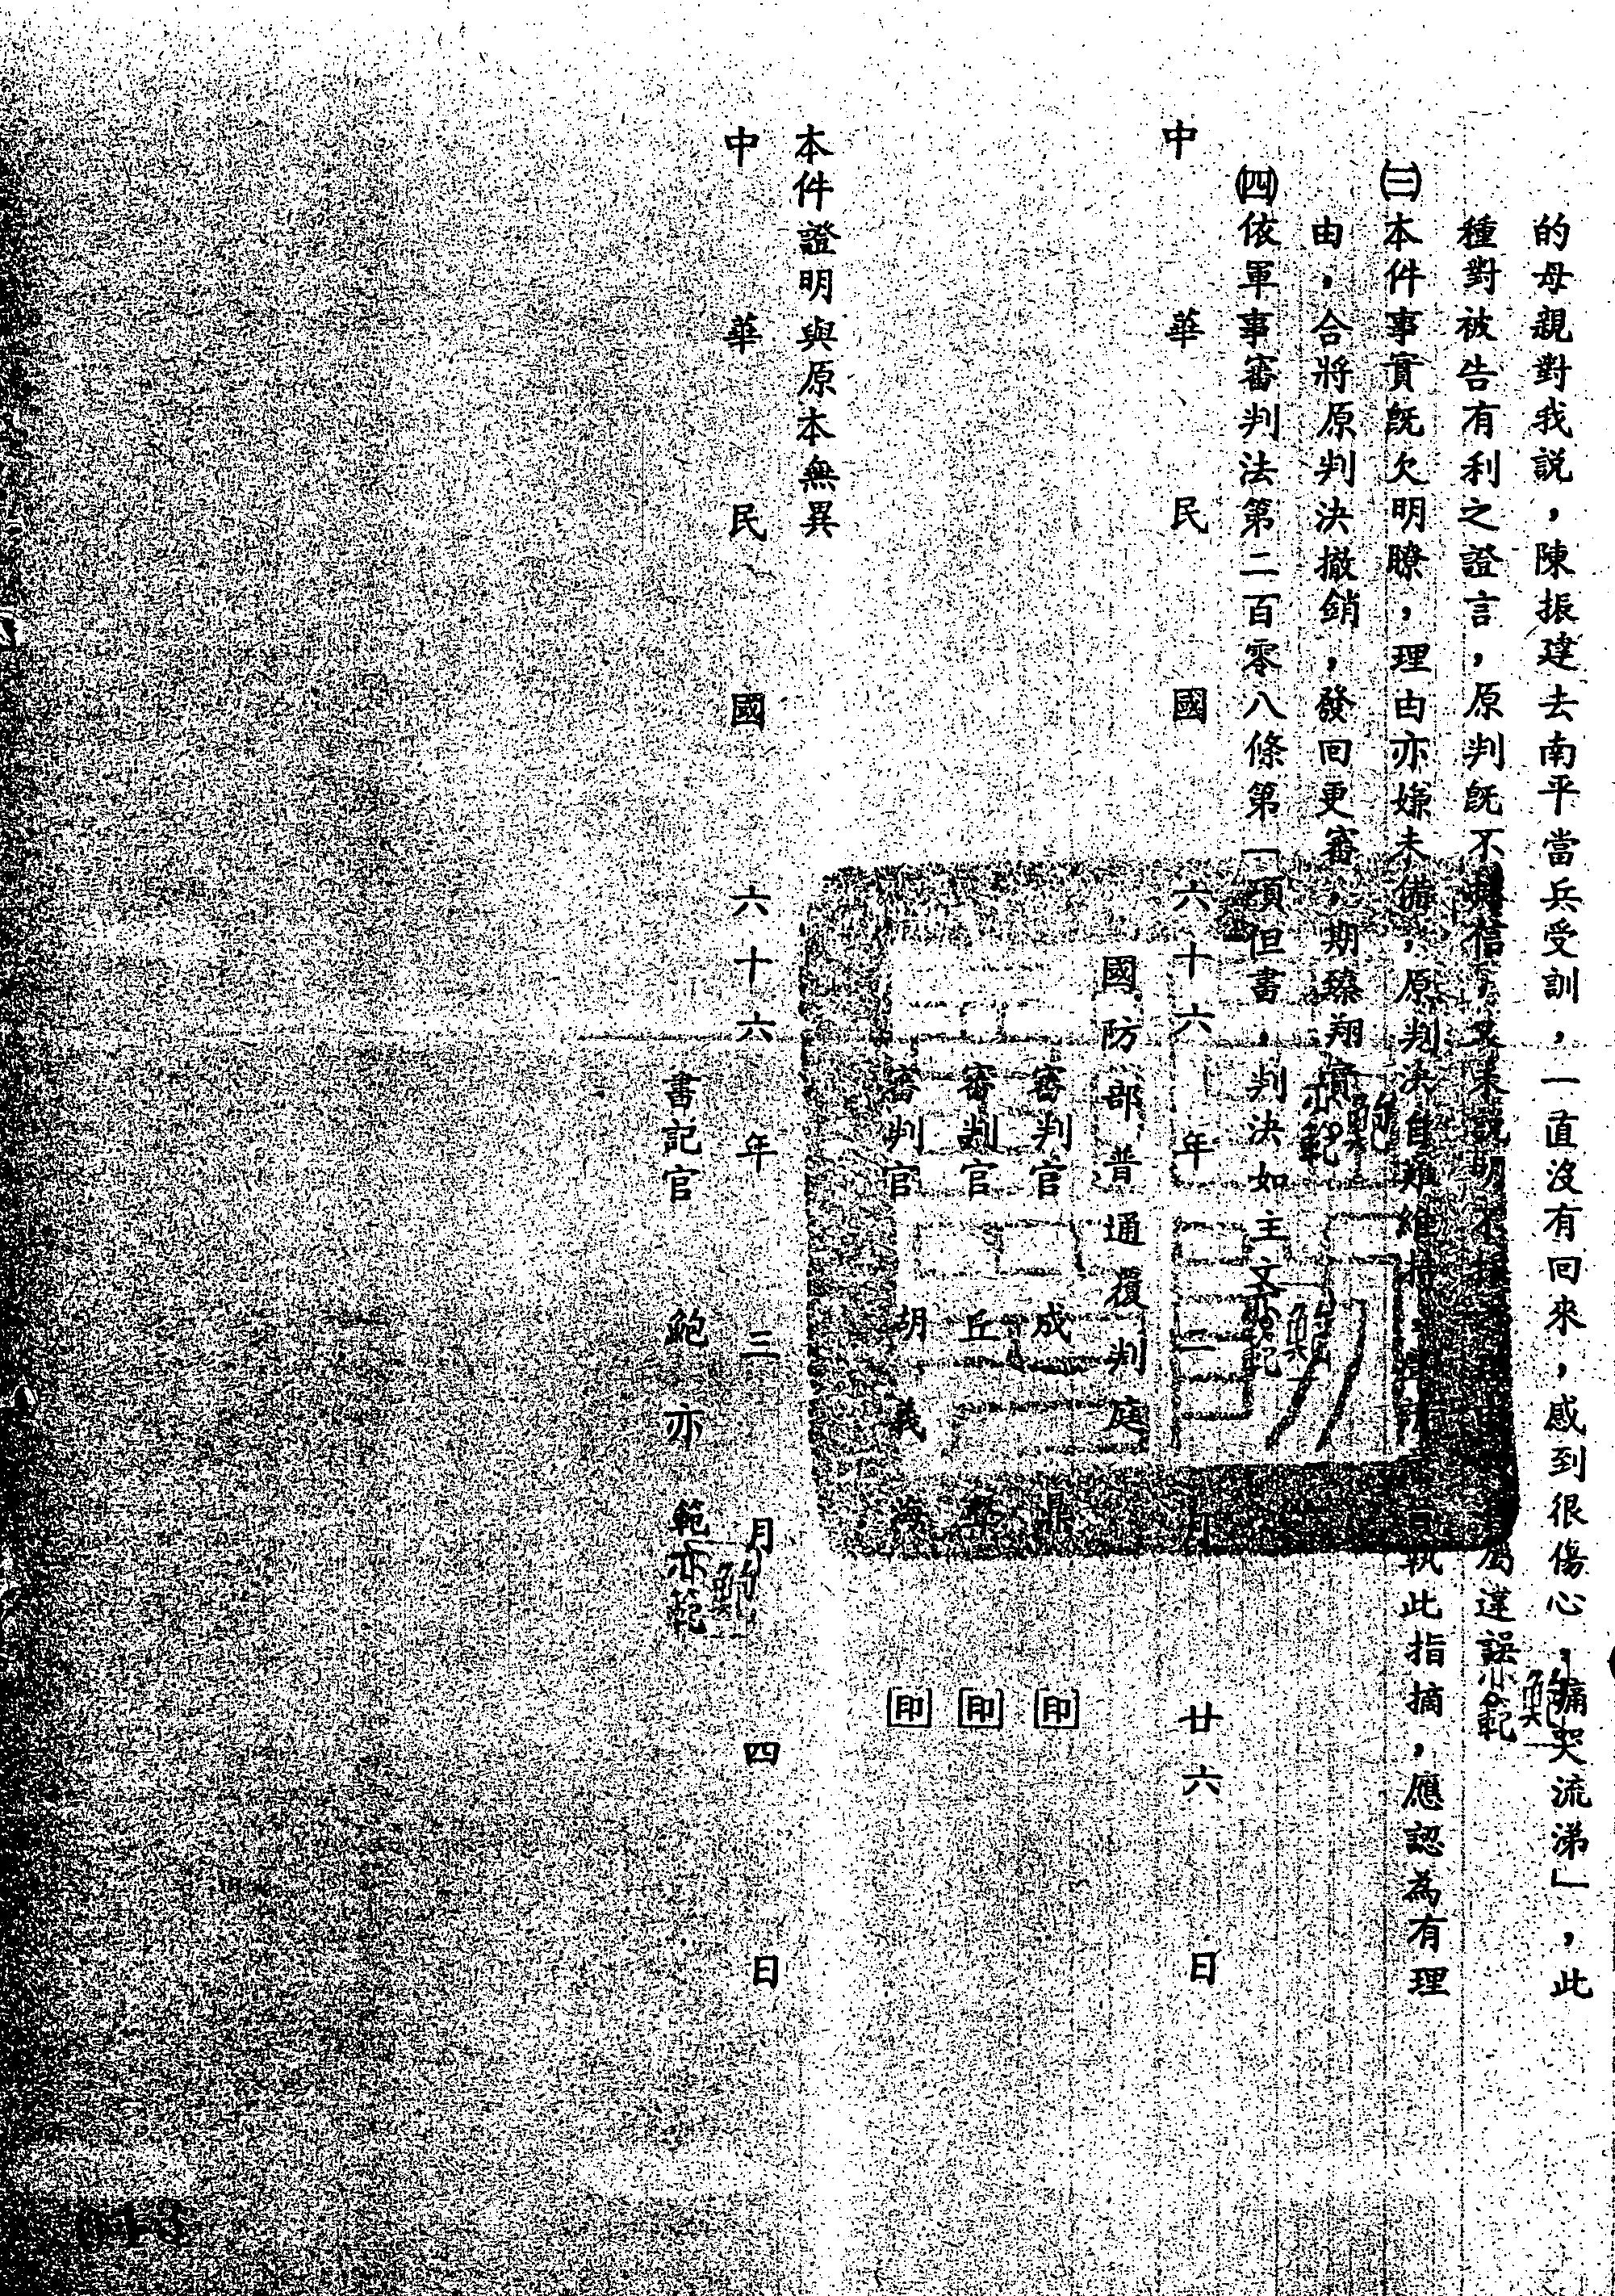 的母親對我説，陳振達去南平當兵受訓，一直沒有回來，感到很傷心，痛哭流涕」，此
種對被告有利之證言，原判既不採信，又未説明不採之理由，屬違誤
㈢本件事實既欠明瞭，理由亦嫌未備，原判決自難維持，執此指摘，應認為有理
由，合將原判決撤銷，發回更審，期臻翔實。
㈣依軍事審判法第二百零八條第一項但書，判決如主文
中華民國六十六年二月廿六日
國防部普通覆判庭
審判官 成 鼎 印
審判官 丘 印
審判官 胡義海 印
本件證明與原本無異
中華民國六十六年三月四日
書記官 鮑亦範
013